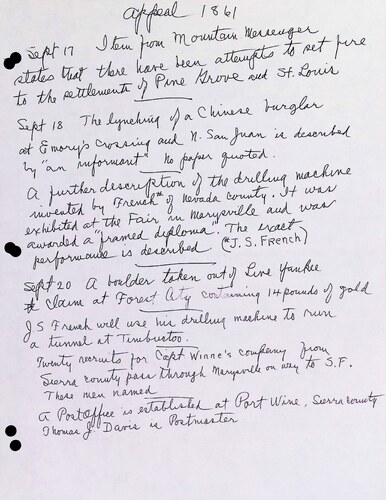 appeal 1861
Sept 17 Item from Mountain Messenger
states that there have been attempts to set fire
to the settlements of Pine Grove and St. Louis
Sept 18 The lynching of a Chinese burglar
at Emory's crossing and N. San Juan is described
by "an informant" No paper quoted.
A further description of the drilling machine
invented by French* of Nevada county. It was
exhibited at the Fair in Marysville and was
awarded a "framed diploma". The exact
performance is described (*J. S. French)
Sept 20 A boulder taken out of Live Yankee
Claim at Forest City containing 14 pounds of gold
J S French will use his drilling machine to run
a tunnel at Timbuctoo.
Twenty recruits for Capt Winne's company from
Sierra county pass through Marysville on way to S.F.
These men named
A PostOffice is established at Port Wine, Sierra County
Thomas J. Davis is Postmaster